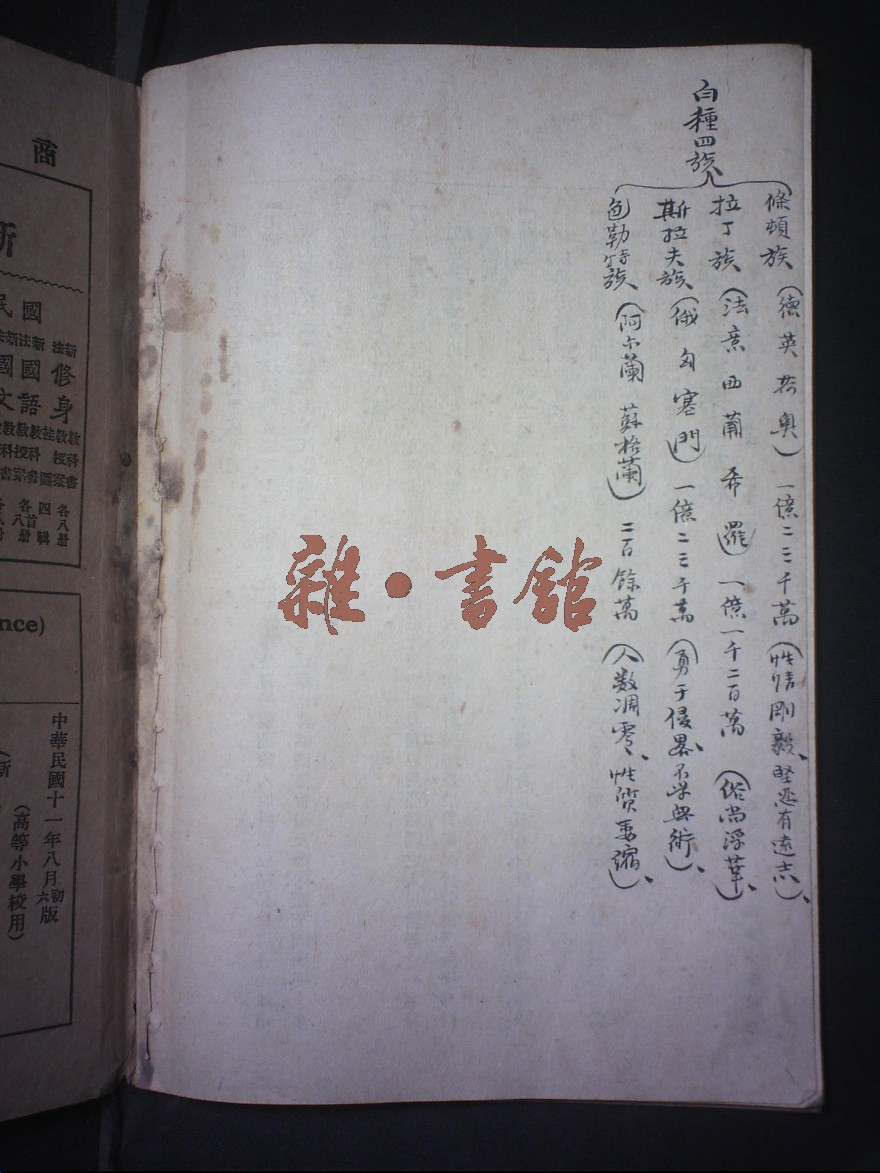 白種四族
條頓族（德英荷奧）一億二三千萬（性情剛毅、堅忍有遠志）、
拉丁族（法意西葡希羅）一億一千二百萬（俗尚浮華）、
斯拉夫族（俄匈塞門）一億二三千萬（勇于侵畧、不学無術）、
色勒特族（阿尔蘭 蘇格蘭）二百餘萬（人数凋零、性質萎縮）、
雜·書舘
商
新
國民
新法修身
新法國語
新法國
文
教科書
教授案
掛圖
各八冊
四輯
首八冊
nce)
中華民國十一年八月初六版
（高等小學校用）
（新